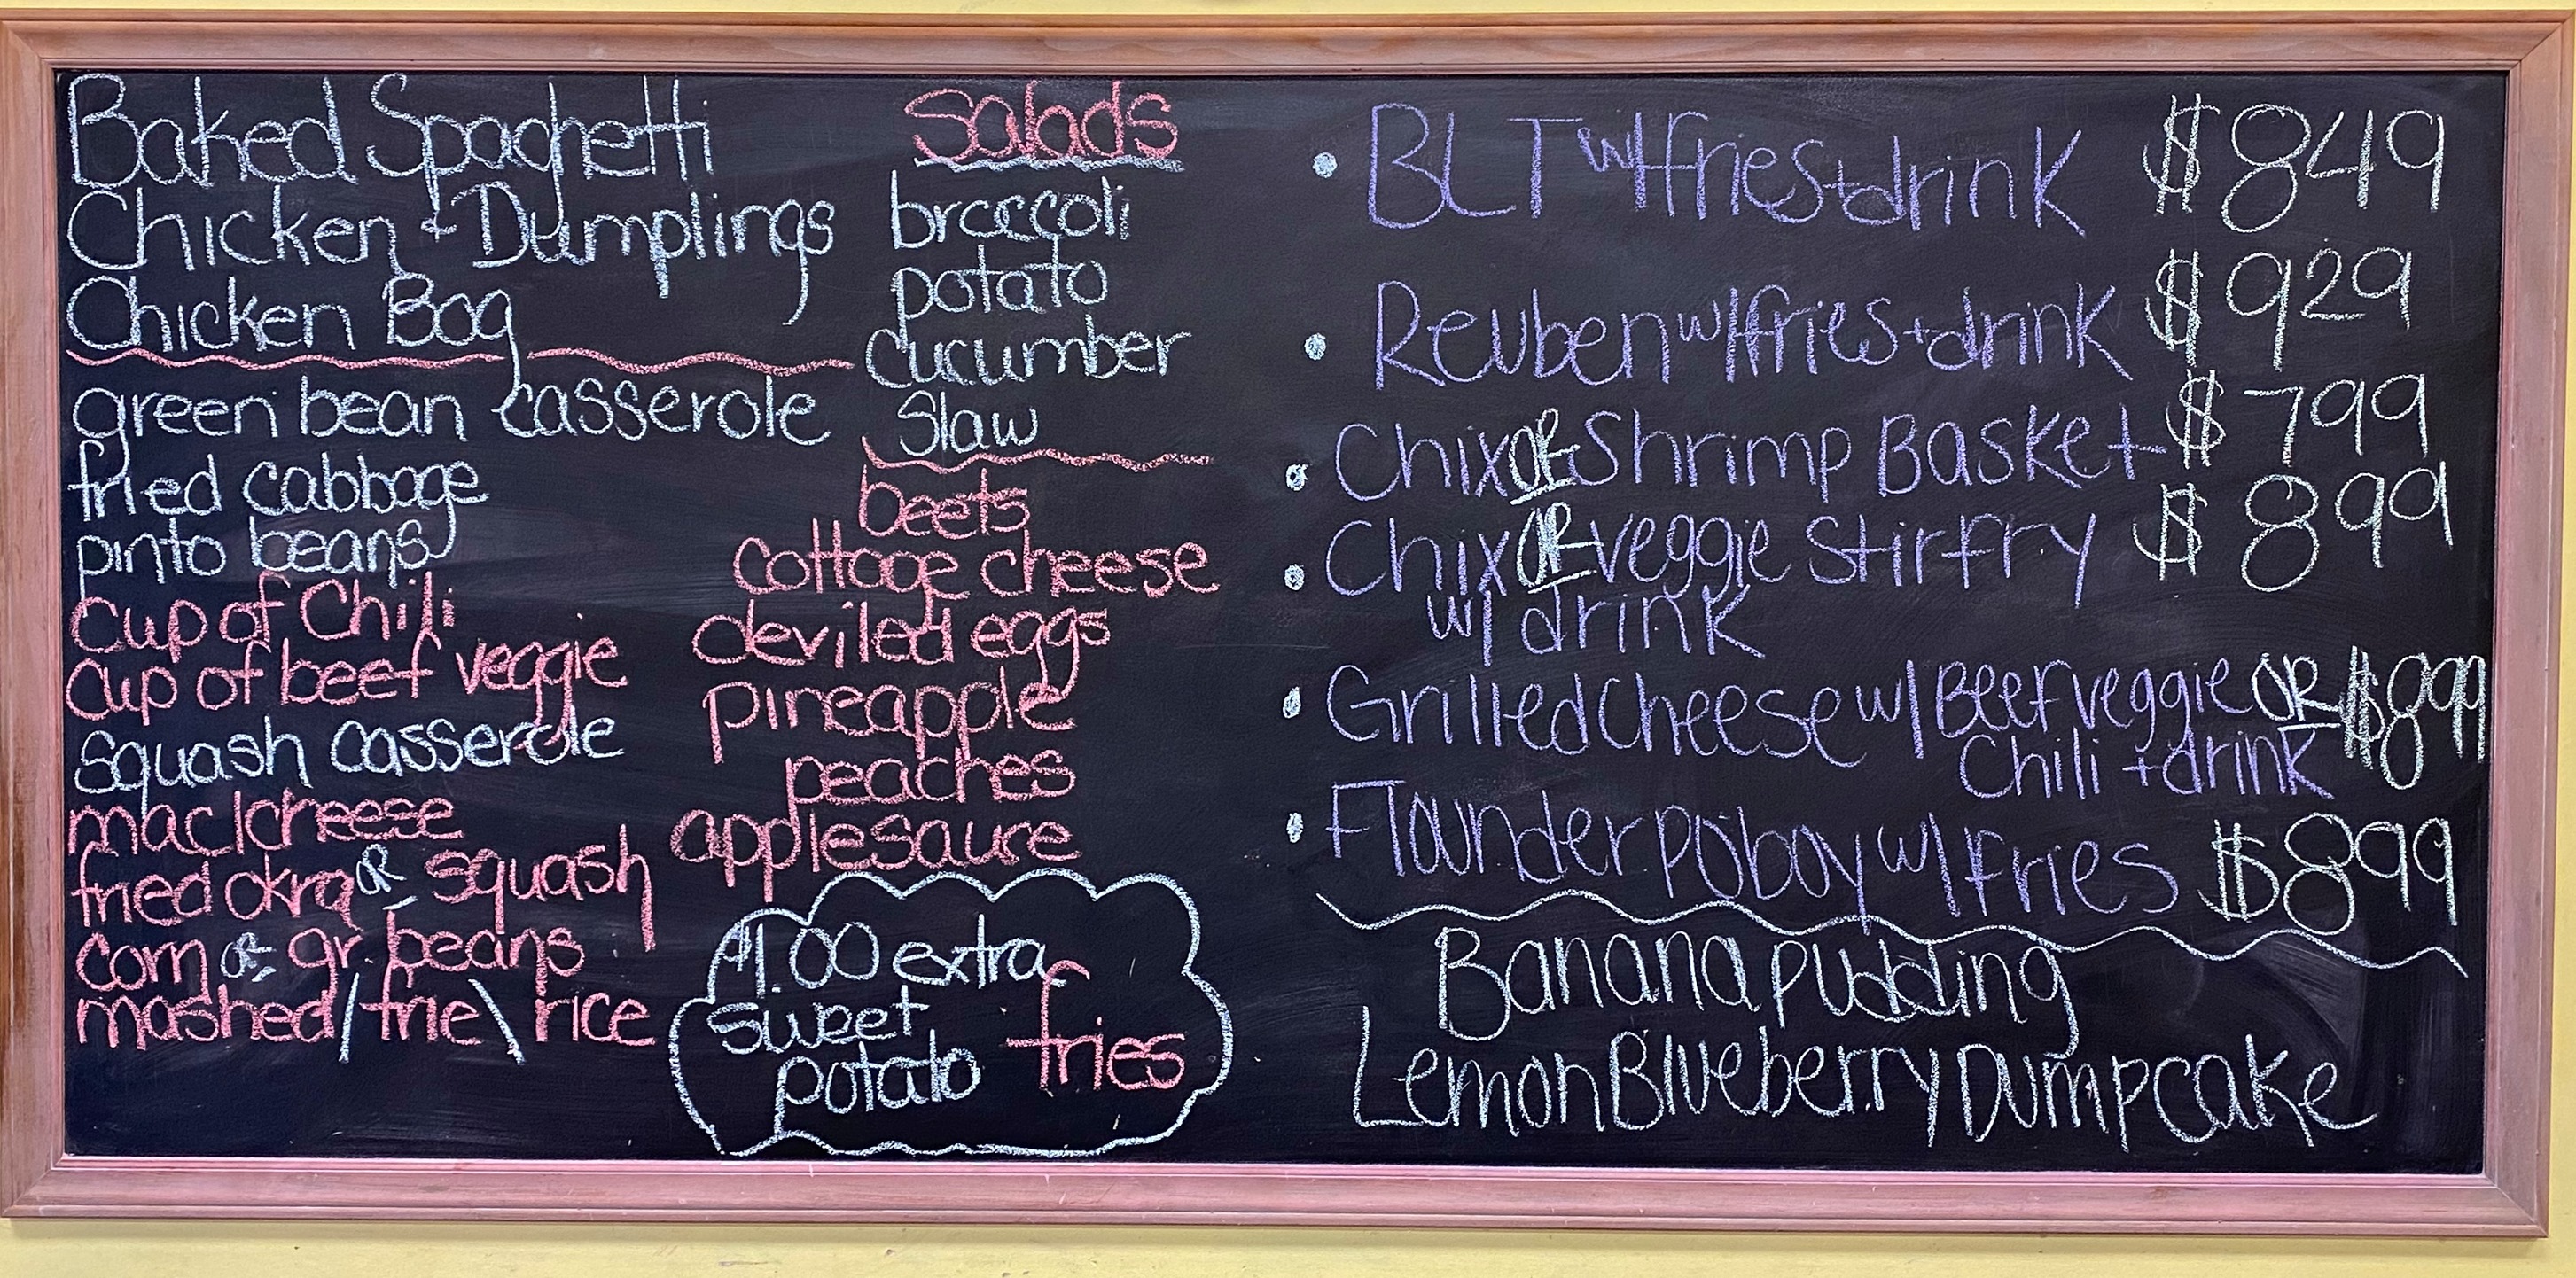 Baked Spaghetti
Chicken + Dumplings
Chicken Bog
green bean casserole
fried cabbage
pinto beans
cup of Chili
cup of beef veggie
squash casserole
mac/cheese
fried okra OR squash
corn OR gr. beans
mashed/frie\rice
Salads
broccoli
potato
cucumber
slaw
beets
cottage cheese
deviled eggs
pineapple
peaches
applesaure
$1.00 extra
sweet
potato fries
• BLT w/fries+drink $849
• Reuben w/fries+drink $929
• Chix OR Shrimp Basket $799
• Chix OR veggie Stirfry $899
w/ drink
• Grilled Cheese w/ Beef veggie OR $899
Chili +drink
• Flounder Poboy w/ Fries $899
Banana pudding
Lemon Blueberry Dumpcake